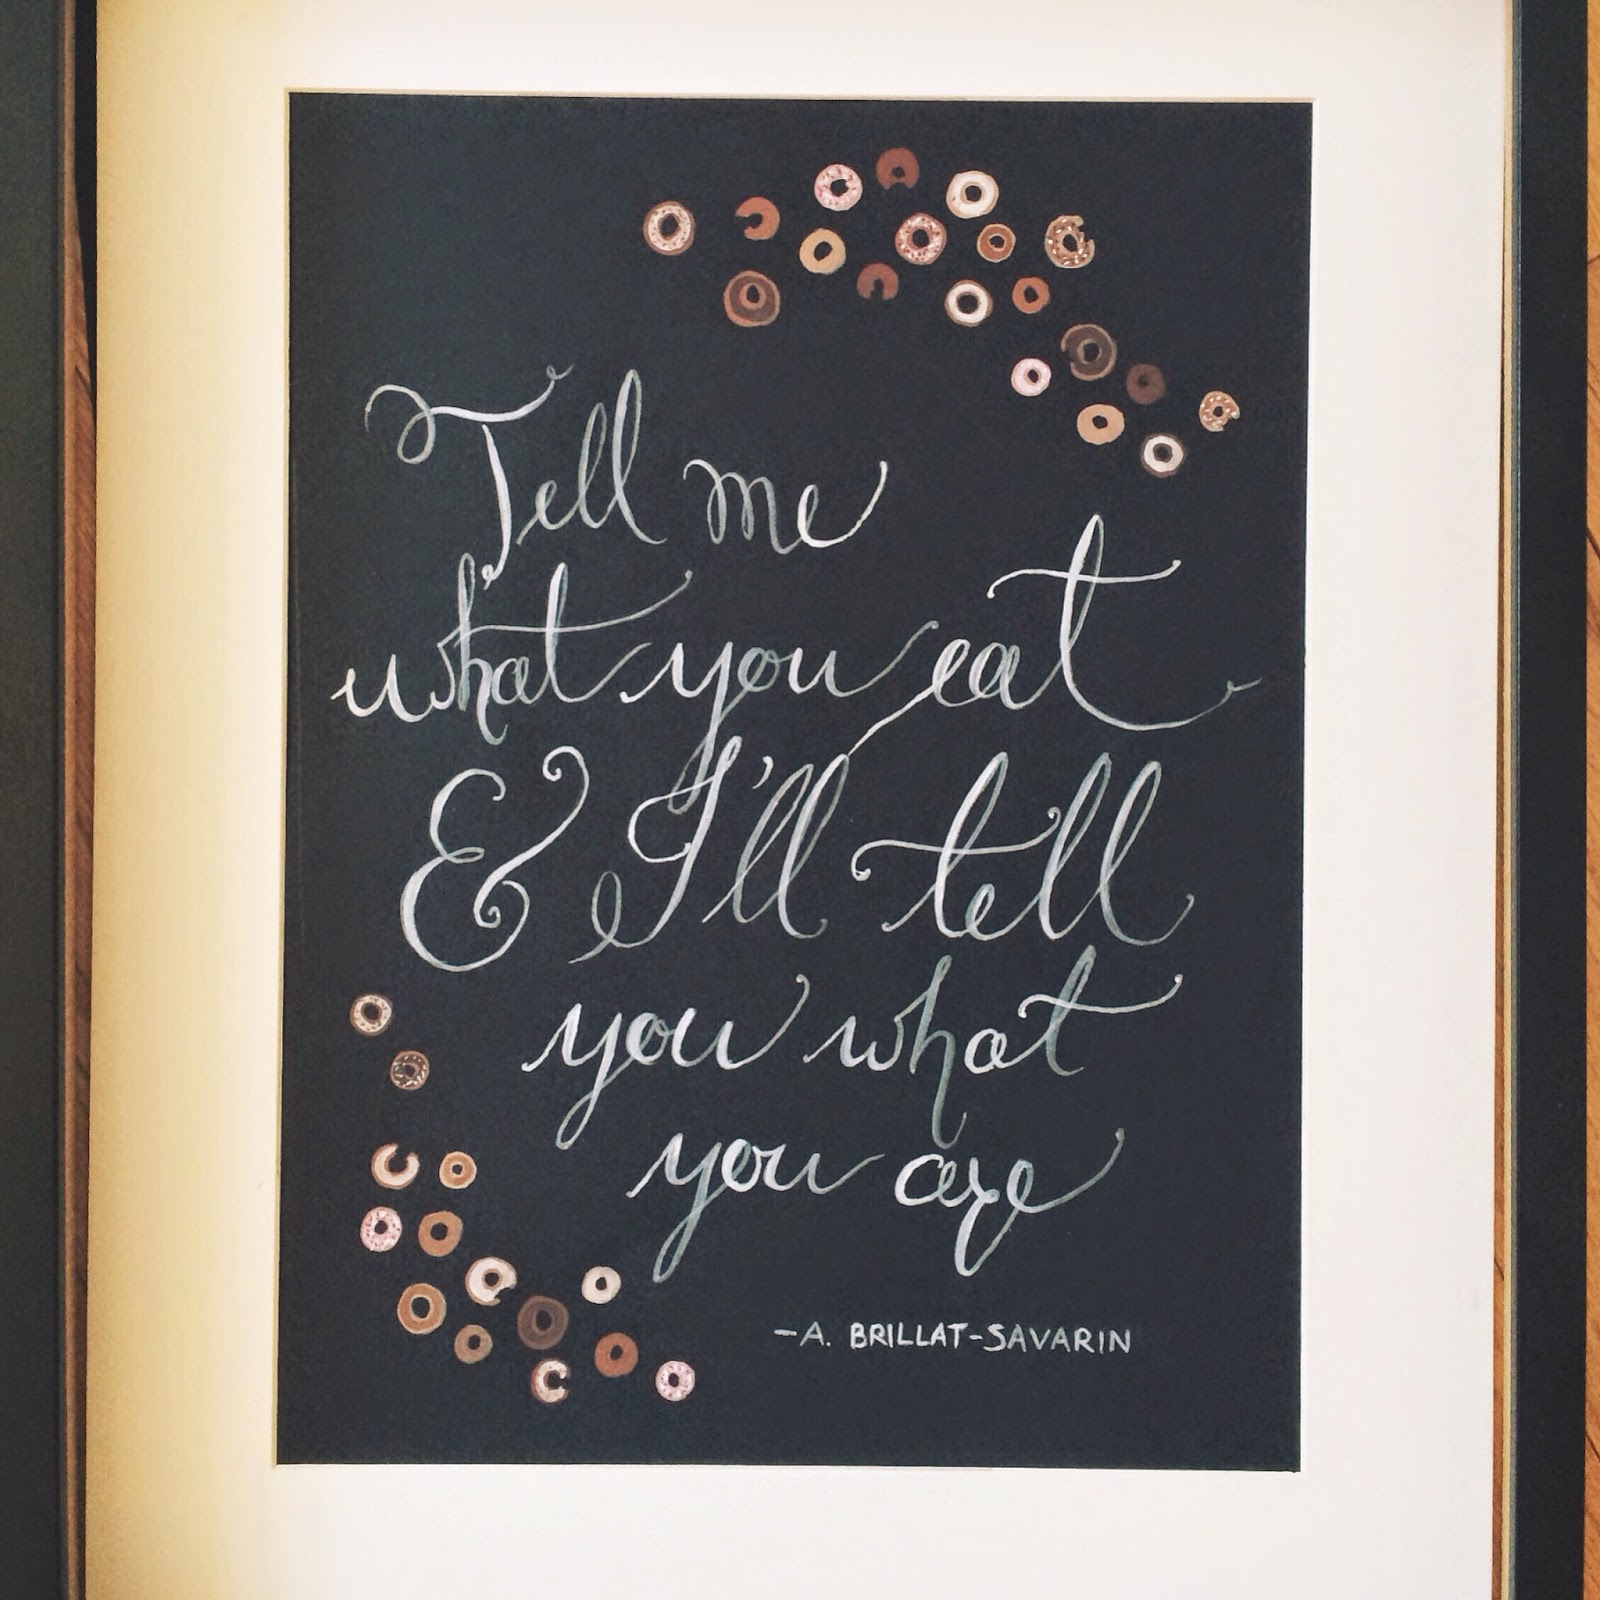 Tell me
what you eat
& I'll tell
you what
you are
-A. BRILLAT-SAVARIN